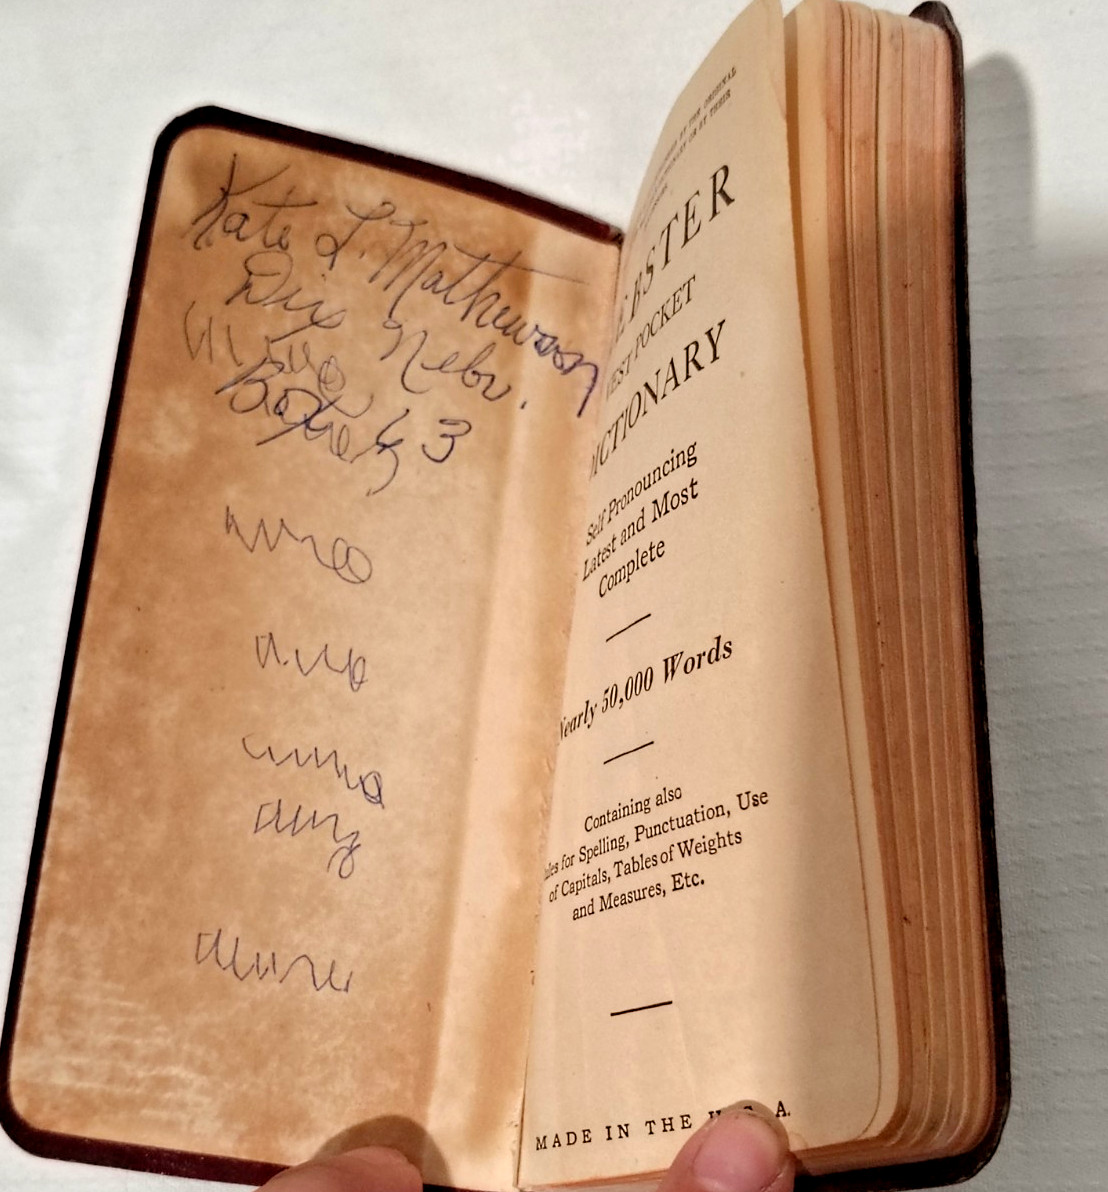 Kate L. Mathewson
Dix Nebr.
Box 63
BY THE ORIGINAL
OR BY THEIR
EBSTER
EST POCKET
ICTIONARY
Self Pronouncing
Latest and Most
Complete
Nearly 50,000 Words
Containing also
ules for Spelling, Punctuation, Use
of Capitals, Tables of Weights
and Measures, Etc.
MADE IN THE U. S. A.